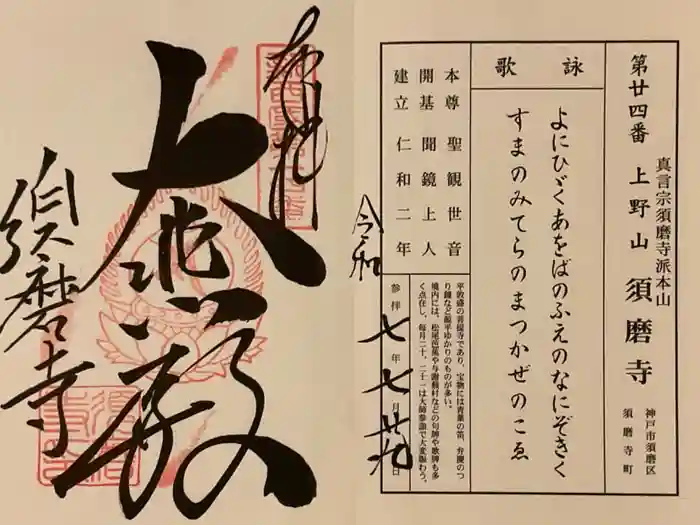 奉拝
大悲殿
須磨寺
第廿四番 上野山 須磨寺
真言宗須磨寺派本山
神戸市須磨区
須磨寺町
詠歌
よにひゞくあをばのふえのなにぞきく
すまのみてらのまつかぜのこゑ
本尊 聖観世音
開基 聞鏡上人
建立 仁和二年
平敦盛の菩提寺であり、宝物には青葉の笛、弁慶のつ
り鐘など源平ゆかりのものが多い。
境内には、松尾芭蕉や与謝蕪村などの句碑や歌碑も多
く点在し、毎月二十、二十一は大師参詣で大変賑わう。
令和
参拝 七年 七月 廿九日